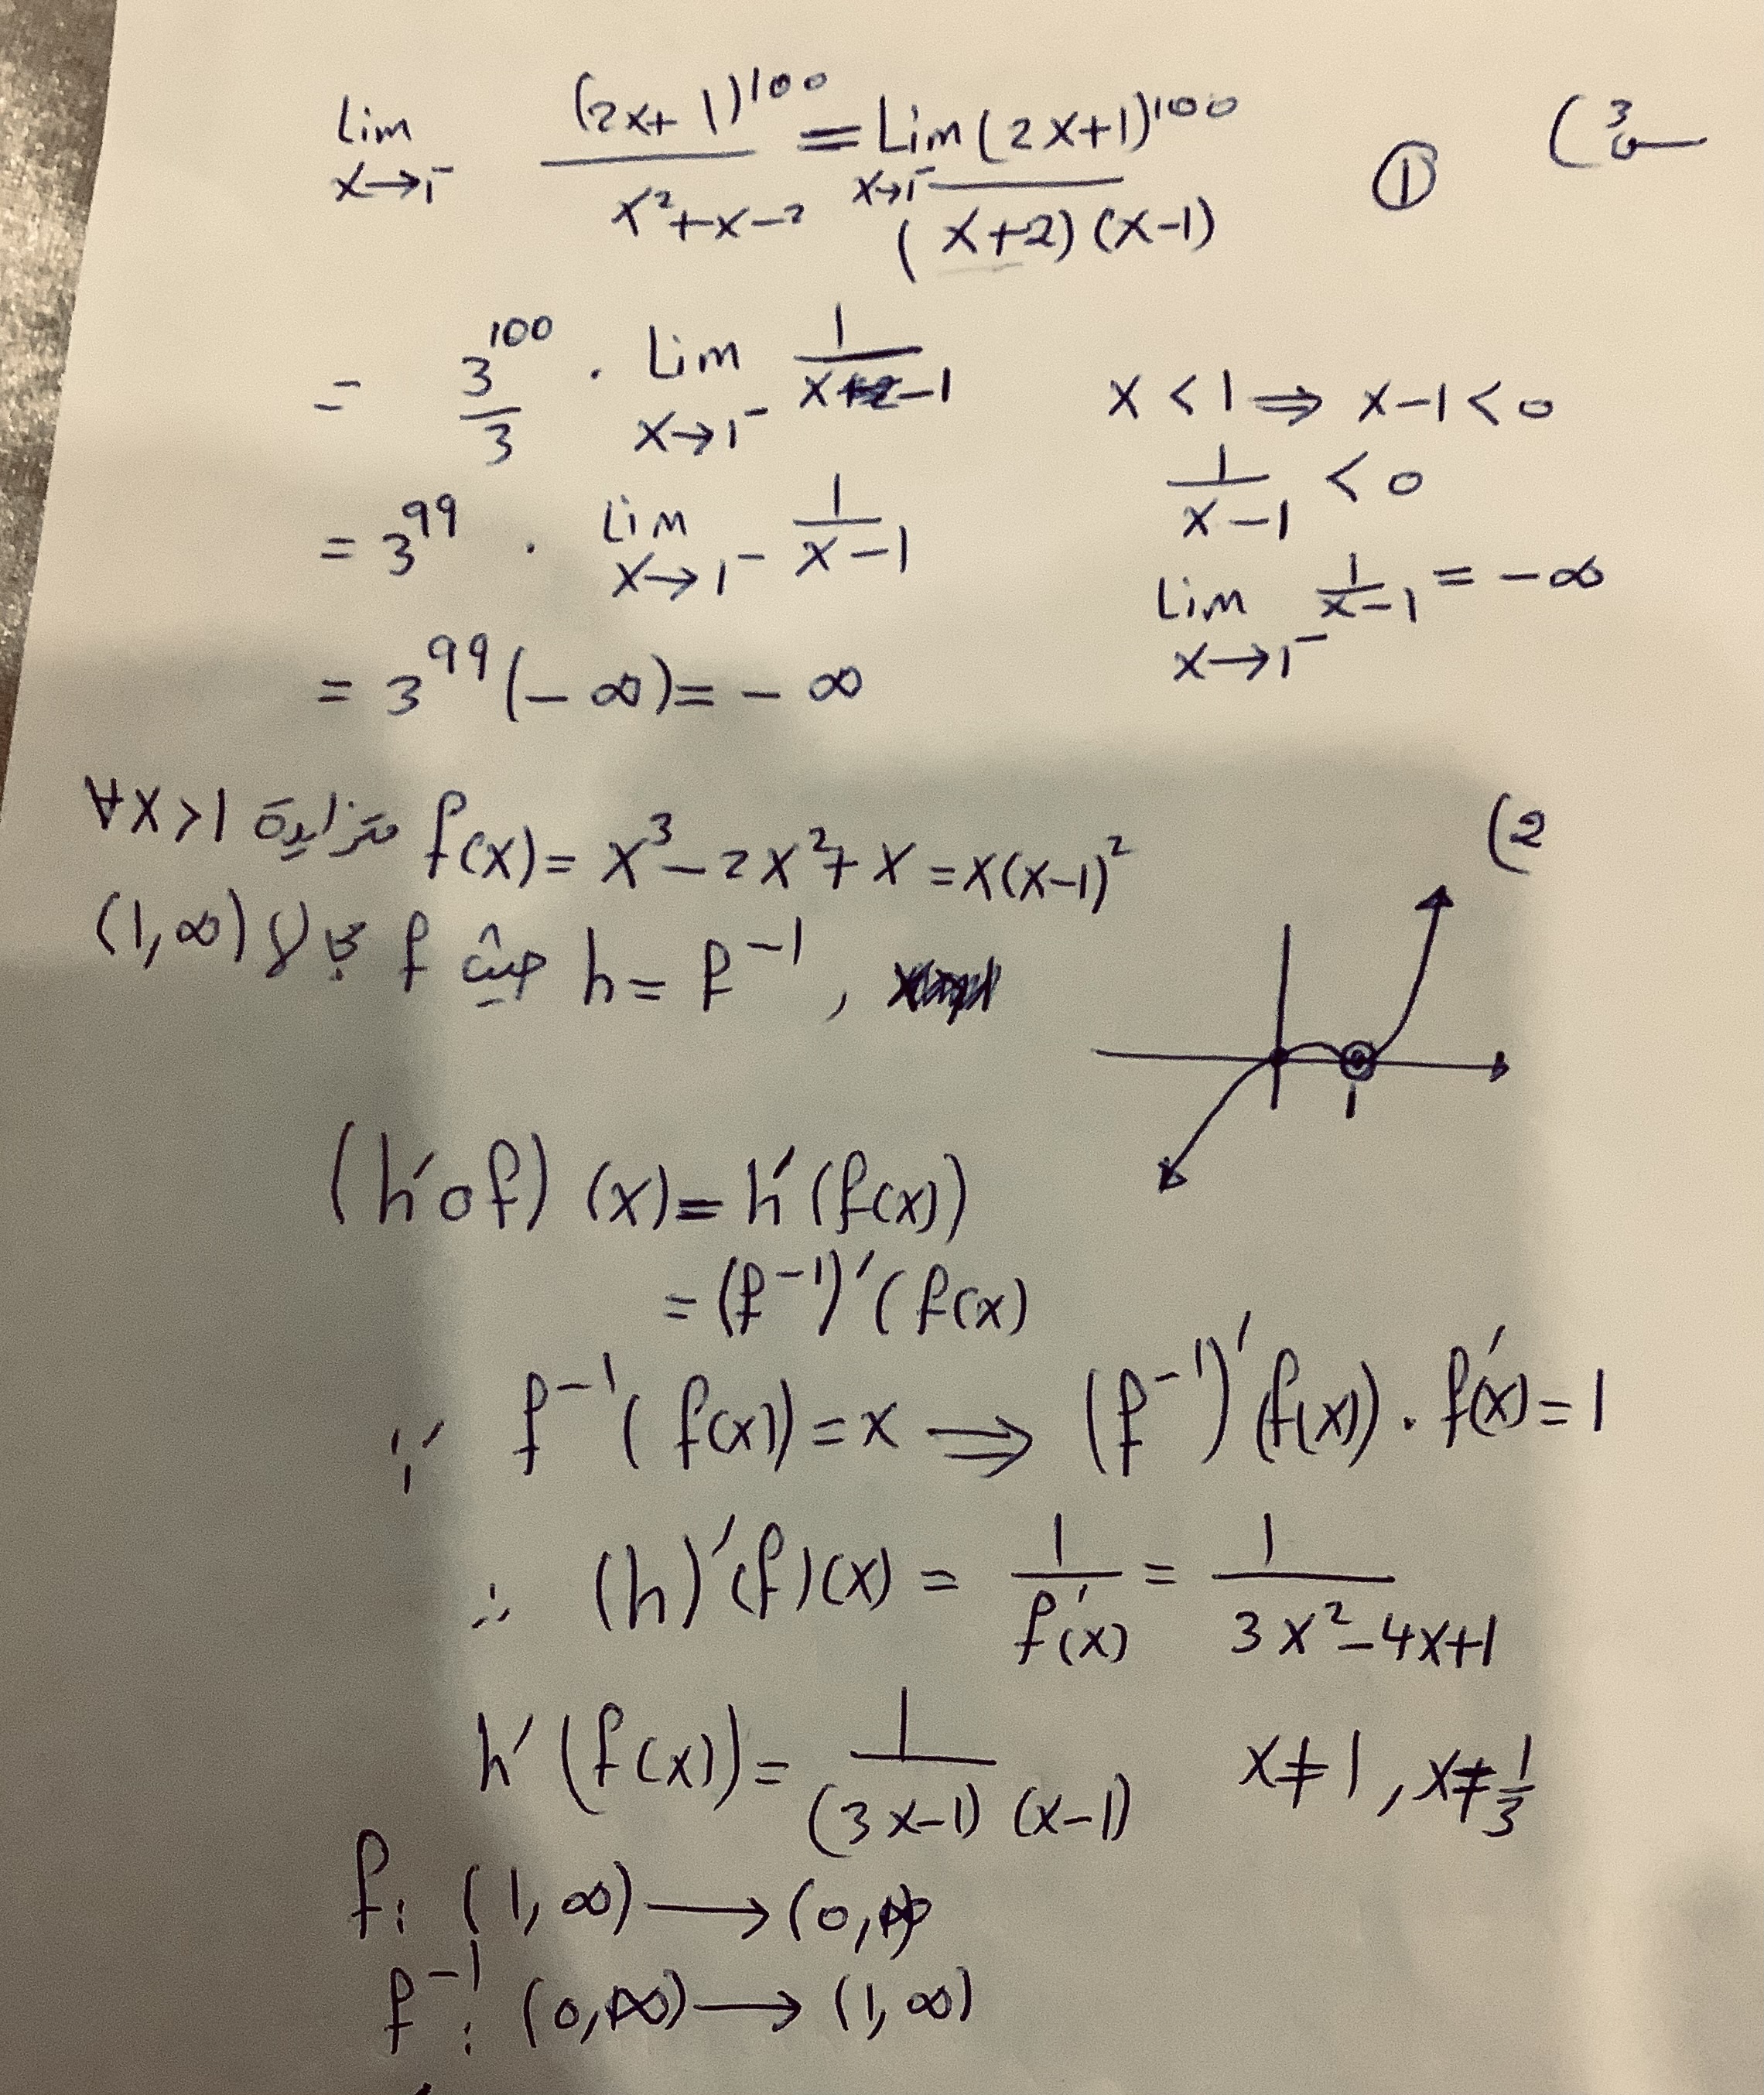 (3 س
① lim x→1⁻ (2x+1)¹⁰⁰ / x²+x−2 = Lim x→1⁻ (2x+1)¹⁰⁰ / (x+2)(x−1)
= 3¹⁰⁰/3 · Lim x→1⁻ 1/x−1
x < 1 ⇒ x−1 < 0
1/x−1 < 0
= 3⁹⁹ · Lim x→1⁻ 1/x−1
Lim x→1⁻ 1/x−1 = −∞
= 3⁹⁹(−∞) = −∞
(2
f(x) = x³−2x²+x = x(x−1)² متزايدة ∀x>1
h = f⁻¹, حيث f مجالها (1,∞)
1
(h′of)(x) = h′(f(x))
= (f⁻¹)′(f(x)
∵ f⁻¹(f(x)) = x ⟹ (f⁻¹)′(f(x)) · f′(x) = 1
∴ (h)′(f)(x) = 1/f′(x) = 1/3x²−4x+1
h′(f(x)) = 1/(3x−1)(x−1) x≠1, x≠1/3
f: (1,∞) ⟶ (0,∞)
f⁻¹: (0,∞) ⟶ (1,∞)